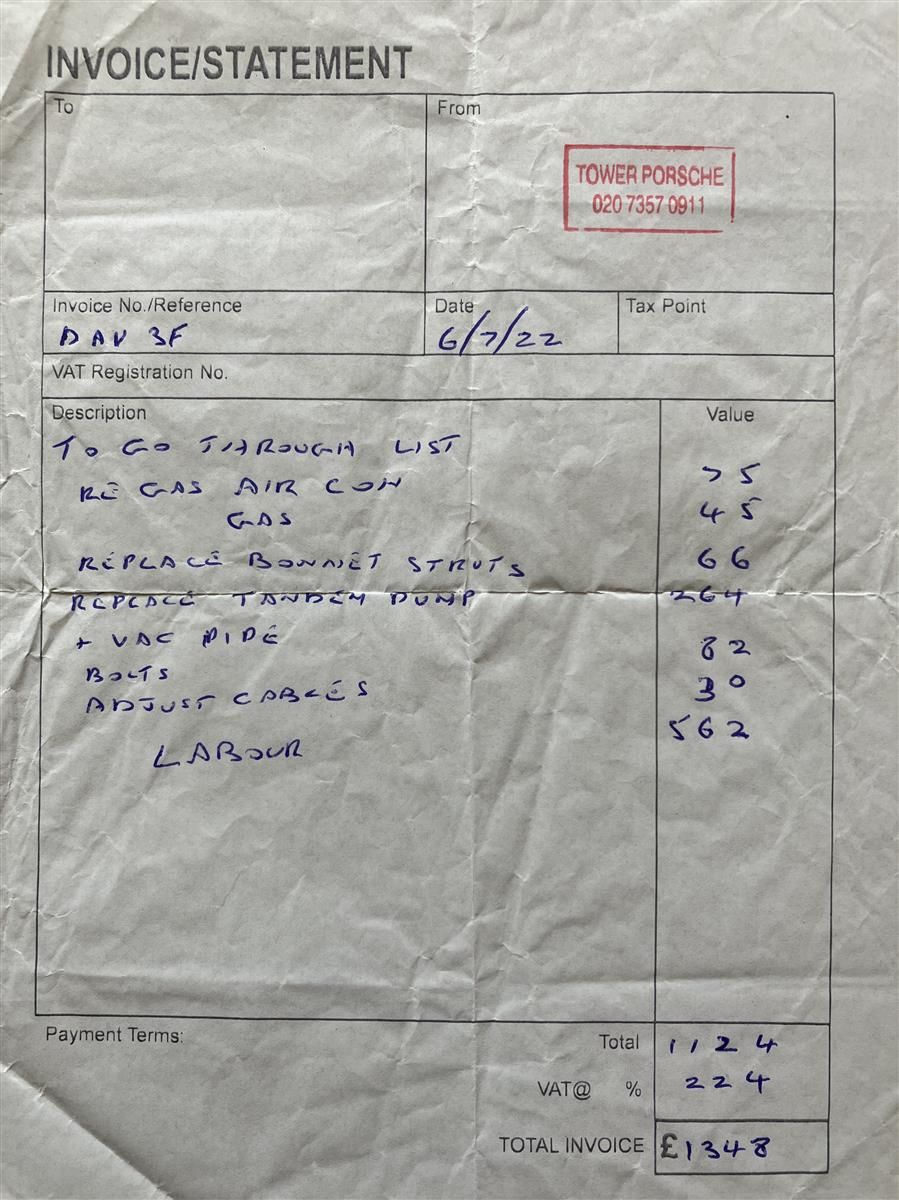 INVOICE/STATEMENT
To
From
TOWER PORSCHE
020 7357 0911
Invoice No./Reference
DAV 3F
Date
6/7/22
Tax Point
VAT Registration No.
Description
Value
TO GO THROUGH LIST
RE GAS AIR CON 75
GAS 45
REPLACE BONNET STRUTS 66
REPLACE TANDEM PUMP 264
+ VAC PIPE 82
BOLTS 30
ADJUST CABLES
LABOUR 562
Payment Terms:
Total 1124
VAT@ % 224
TOTAL INVOICE £1348